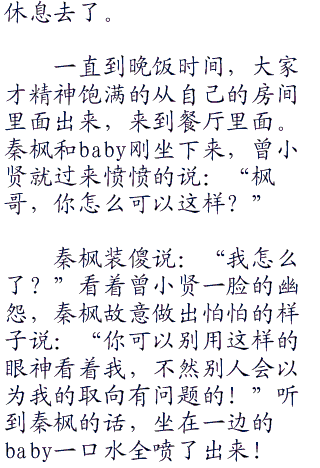 休息去了。
一直到晚饭时间，大家
才精神饱满的从自己的房间
里面出来，来到餐厅里面。
秦枫和baby刚坐下来，曾小
贤就过来愤愤的说：“枫
哥，你怎么可以这样？”
秦枫装傻说：“我怎么
了？”看着曾小贤一脸的幽
怨，秦枫故意做出怕怕的样
子说：“你可以别用这样的
眼神看着我，不然别人会以
为我的取向有问题的！”听
到秦枫的话，坐在一边的
baby一口水全喷了出来！